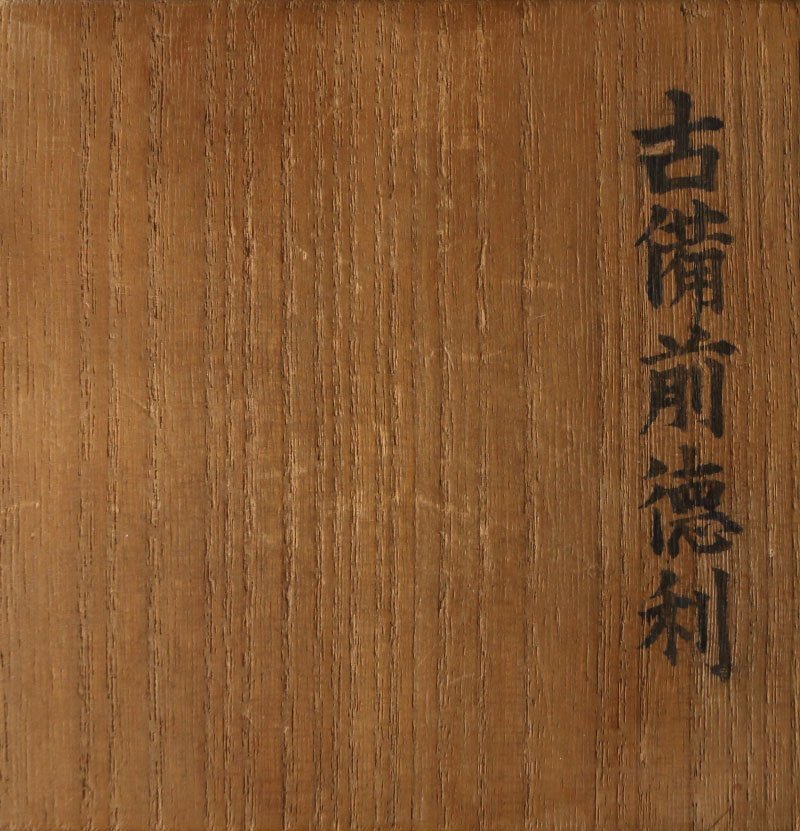 古備前德利